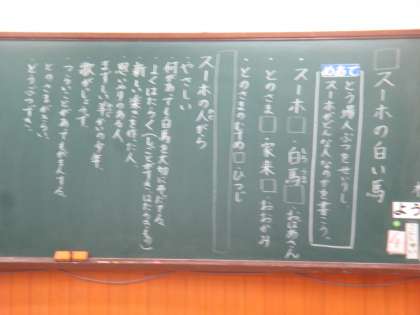 スーホの白い馬
めあて
とう場人ぶつをせいりし、
スーホがどんな人なのかを書こう。
・スーホ ・白馬 ・おばあさん
・とのさま ・家来 ・おおかみ
・とのさまのむすめ ・ひつじ
スーホの人がら
・やさしい
・何があっても白馬を大切にそだてる。
・よくはたらく(しごとがすき・はたらきもの)
・新しい楽きを作った人。
・思いやりのある人。
・まずしい
・歌がじょうず。
・つらいことがあってもがまんする。
・とのさまがきらい。
・どうぶつずき。
よう